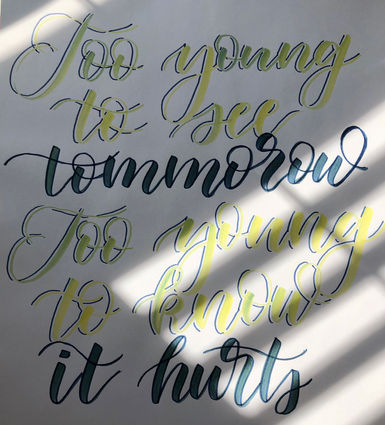 Too young
to see
tommorow
Too young
to know
it hurts